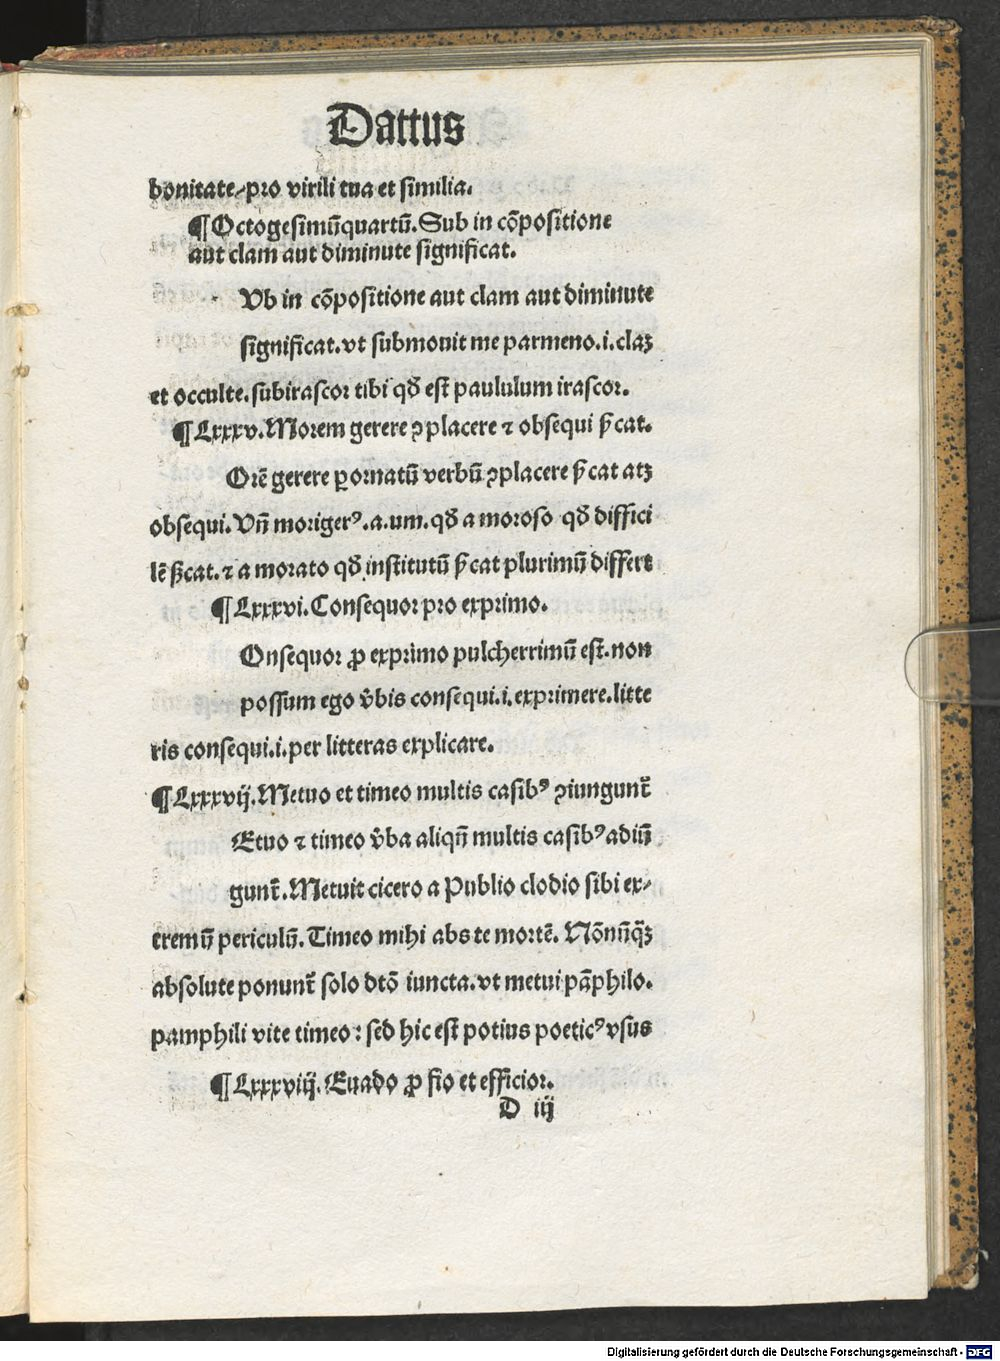 Dattus
bonitate, pro virili tua et similia.
¶ Octogesimūquartū. Sub in cōpositione
aut clam aut diminute significat.
Vb in cōpositione aut clam aut diminute
significat. vt submonuit me parmeno .i. claꝫ
et occulte. subirascor tibi qḋ est paululum irascor.
¶ Lxxxv. Morem gerere ꝯplacere ⁊ obsequi ẜcat.
Orē gerere ꝑornatū verbū ꝯplacere ẜcat atꝫ
obsequi. Vñ morigerꝰ .a.um. qḋ a moroso qḋ diffici
lē ẜcat. ⁊ a morato qḋ institutū ẜcat plurimū differt
¶ Lxxxvi. Consequor pro exprimo.
Onsequor ꝓ exprimo pulcherrimū est. non
possum ego v̄bis consequi .i. exprimere. litte
ris consequi .i. per litteras explicare.
¶ Lxxxvij. Metuo et timeo multis casibꝰ ꝯiungunt᷑
Etuo ⁊ timeo v̄ba aliqñ multis casibꝰ adiū
gunt᷑. Metuit cicero a Publio clodio sibi ex-
tremū periculū. Timeo mihi abs te mortē. Nōnūq̄ꝫ
absolute ponunt᷑ solo dtō iuncta. vt metui pāphilo.
pamphili vite timeo: sed hic est potius poeticꝰ vsus
¶ Lxxxviij. Euado ꝓ fio et efficior.
D iij
Digitalisierung gefördert durch die Deutsche Forschungsgemeinschaft - DFG